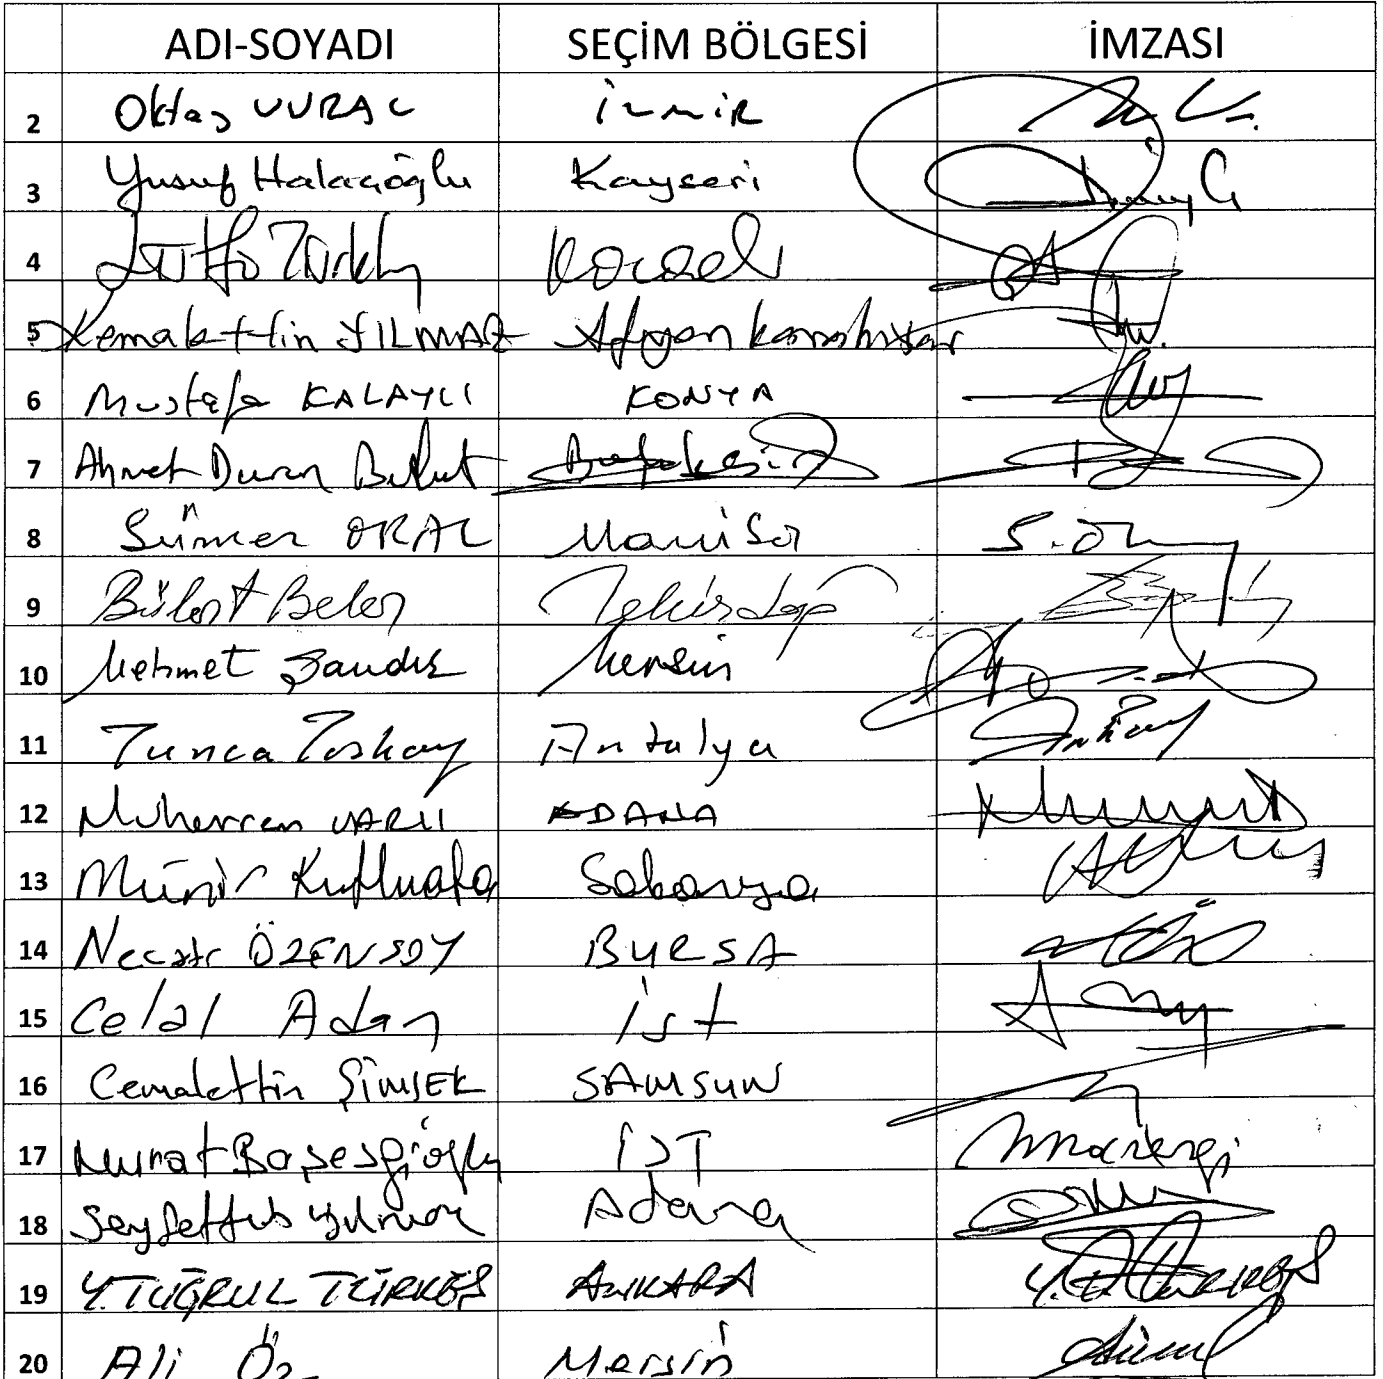 ADI-SOYADI SEÇİM BÖLGESİ İMZASI
2 Oktay VURAL İzmir
3 Yusuf Halaçoğlu Kayseri
4 Lütfü Türkkan Kocaeli
5 Kemalettin YILMAZ Afyonkarahisar
6 Mustafa KALAYCI KONYA
7 Ahmet Duran Bulut Balıkesir
8 Sümer ORAL Manisa S. Oral
9 Bülent Belen Tekirdağ
10 Mehmet Şandır Mersin
11 Tunca Toskay Antalya
12 Muharrem VARLI ADANA
13 Münir Kutluata Sakarya
14 Necati ÖZENSOY BURSA
15 Celal Adan İst
16 Cemalettin ŞİMŞEK SAMSUN
17 Murat Başesgioğlu İST
18 Seyfettin Yılmaz Adana
19 Y.TUĞRUL TÜRKEŞ ANKARA
20 Ali Öz Mersin